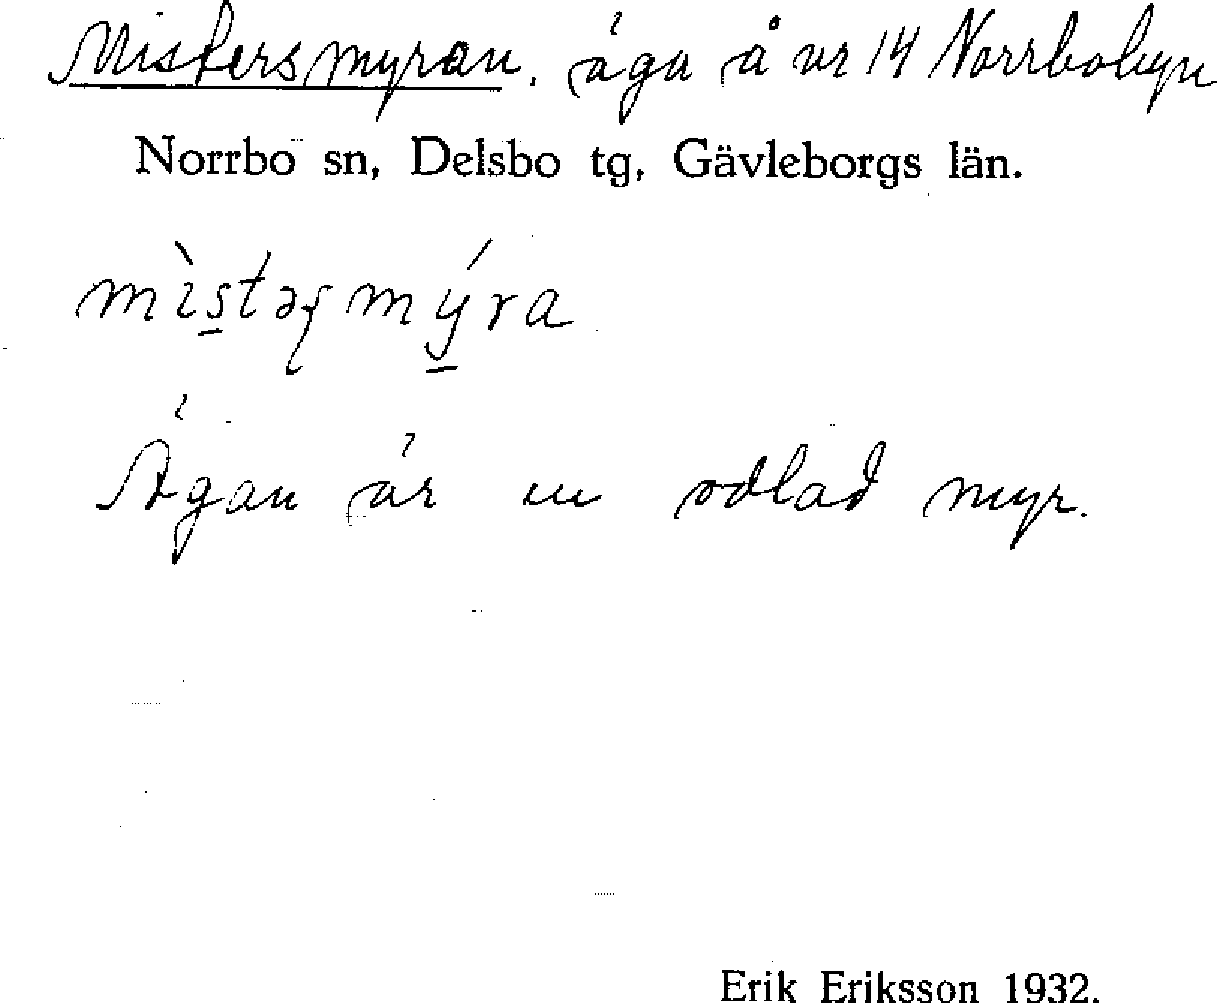 Mistersmyran. äga å nr 14 Norrbobyn
Norrbo sn, Delsbo tg, Gävleborgs län.
mìstəʂmýra
Ägan är en odlad myr.
Erik Eriksson 1932.